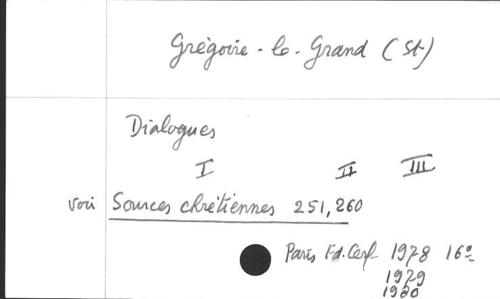 Grégoire-le-Grand (St)
Dialogues
I II III
voir Sources chrétiennes 251, 260
Paris Ed. Cerf 1978 16º
1979
1980